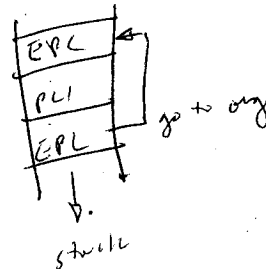 EPL
PL1
EPL
go to org
stack